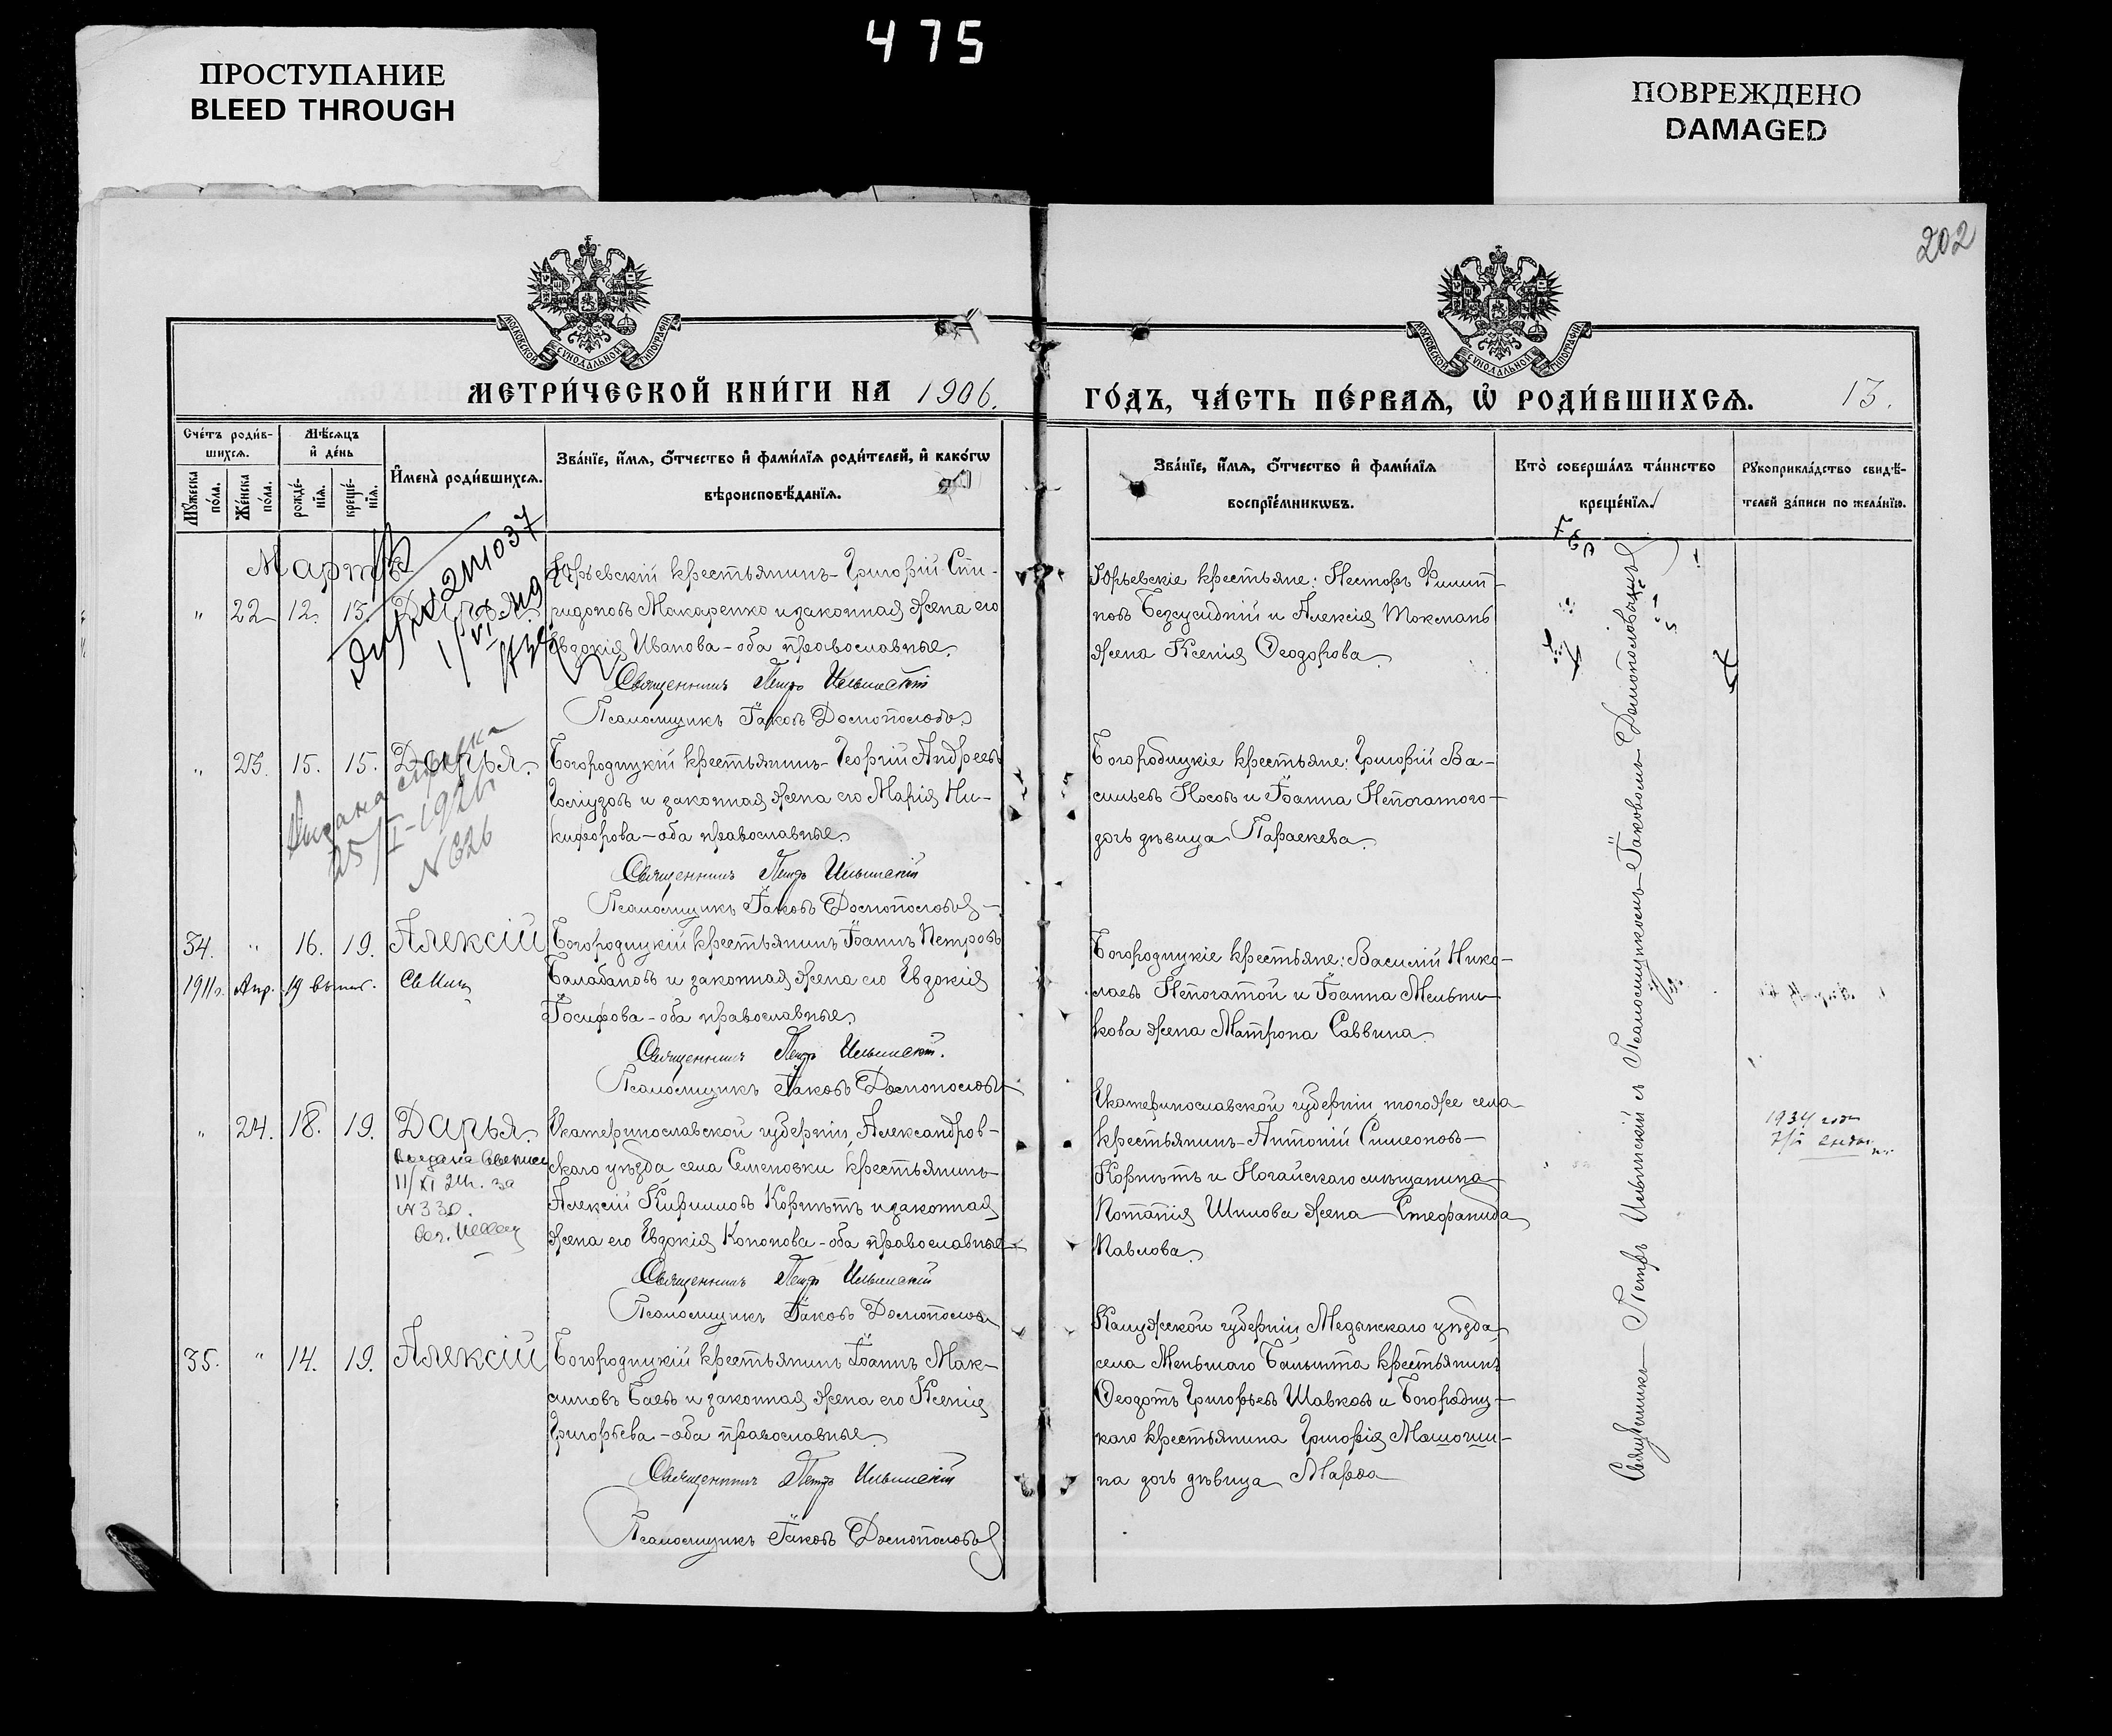 475
ПРОСТУПАНИЕ
BLEED THROUGH
ПОВРЕЖДЕНО
DAMAGED
202
МОСКОВСКОЙ СѴНОДАЛЬНОЙ ТИПОГРАФІИ
МОСКОВСКОЙ СѴНОДАЛЬНОЙ ТИПОГРАФІИ
МЕТРИ́ЧЕСКОЙ КНИ́ГИ НА 1906.
ГО́ДЪ, ЧА́СТЬ ПЕ́РВАѦ, Ѡ҆ РОДИ́ВШИХСѦ. 13.
Сче́тъ роди́в-
шихсѧ.
Мѣ́сѧцъ
и҆ де́нь
Мꙋ́жеска
по́ла.
Же́нска
по́ла.
рожде́-
нїѧ.
креще́-
нїѧ.
И҆мена̀ роди́вшихсѧ.
Зва́нїе, и҆́мѧ, ѻ҆́тчество и҆ фами́лїѧ роди́телей, и҆ како́гѡ
вѣроисповѣ́данїѧ.
Зва́нїе, и҆́мѧ, ѻ҆́тчество и҆ фами́лїѧ
воспрїе́мникѡвъ.
Кто̀ соверша́лъ та́инство
креще́нїѧ.
Рꙋкоприкла́дство свидѣ́-
телей за́писи по жела́нїю.
Мартъ
" 22 12. 15.
Юрьевскій крестьянинъ Григорій Спи-
ридоновъ Макаренко и законная жена его
Евдокія Иванова - оба православные.
Священникъ Петръ Ильинскій
Псаломщикъ Іаковъ Домонословъ
Юрьевскіе крестьяне: Несторъ Филип-
повъ Безсусидній и Алексія Токмань
жена Ксенія Ѳеодорова.
" 23. 15. 15. Дарья.
Выдана справка
25/I-1926
N 626
Богородицкій крестьянинъ Георгій Андреевъ
и законная жена его Марія Ни-
кифорова - оба православные.
Священникъ Петръ Ильинскій
Псаломщикъ Іаковъ Домонословъ
Богородицкіе крестьяне: Григорій Ва-
сильевъ Носовъ и Іоанна Непочатого
дочь дѣвица Параскева.
34. " 16. 19. Алексій
1911 г. Апр. 19
Богородицкій крестьянинъ Іоаннъ Петровъ
Балабановъ и законная жена его Евдокія
Іосифова - оба православные.
Священникъ Петръ Ильинскій.
Псаломщикъ Іаковъ Домонословъ
Богородицкіе крестьяне: Василій Нико-
лаевъ Непочатой и Іоанна Мельни-
кова жена Матрона Саввина.
" 24. 18. 19. Дарья.
11/XI 24 г. за
N 330.
Екатеринославской губерніи, Александров-
скаго уѣзда села Семеновки крестьянинъ
Алексій Кирилловъ Корнѣтъ и законная
жена его Евдокія Кононова - оба православные
Священникъ Петръ Ильинскій
Псаломщикъ Іаковъ Домонословъ
Екатеринославской губерніи того же села
крестьянинъ Антоній Симеоновъ
Корнѣтъ и Ногайскаго мѣщанина
Потапія Шилова жена Стефанида
Павлова.
1934 года
35. " 14. 19. Алексій
Богородицкій крестьянинъ Іоаннъ Мак-
симовъ Баевъ и законная жена его Ксенія
Григорьева - оба православные.
Священникъ Петръ Ильинскій
Псаломщикъ Іаковъ Домонословъ
Калужской губерніи, Медынскаго уѣзда,
села Меньшаго крестьянинъ
Ѳеодотъ Григорьевъ Шавковъ и Богородиц-
каго крестьянина Григорія Машошин-
на дочь дѣвица Марѳа
Священникъ Петръ Ильинскій съ Псаломщикомъ Іаковомъ Домонословымъ